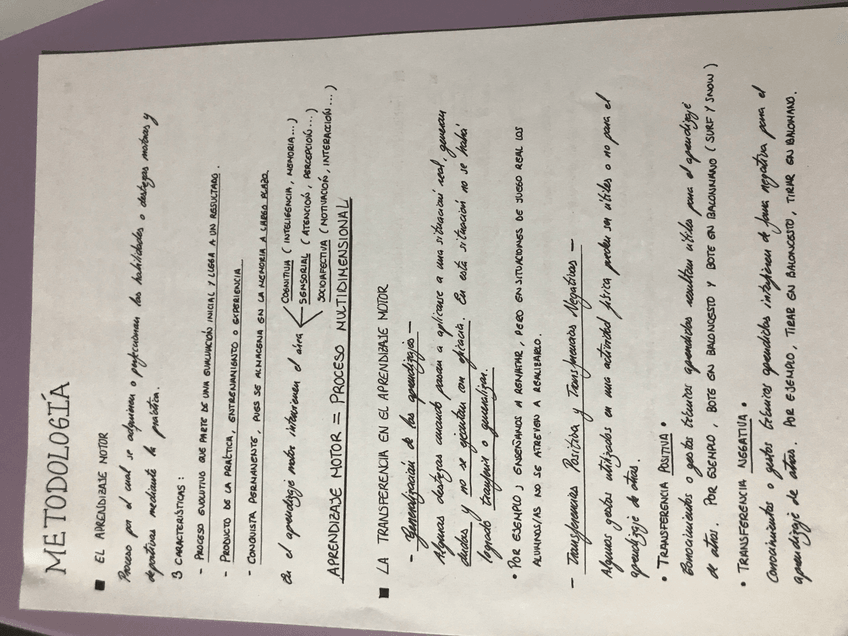 METODOLOGÍA
■ EL APRENDIZAJE MOTOR
Proceso por el cual se adquieren o perfeccionan las habilidades o destrezas motoras y
deportivas mediante la práctica.
3 CARACTERÍSTICAS:
- PROCESO EVOLUTIVO QUE PARTE DE UNA EVALUACIÓN INICIAL Y LLEGA A UN RESULTADO.
- PRODUCTO DE LA PRÁCTICA, ENTRENAMIENTO O EXPERIENCIA
- CONQUISTA PERMANENTE, PUES SE ALMACENA EN LA MEMORIA A LARGO PLAZO
COGNITIVA (INTELIGENCIA, MEMORIA...)
En el aprendizaje motor intervienen el área SENSORIAL (ATENCIÓN, PERCEPCIÓN...)
SOCIOAFECTIVA (MOTIVACIÓN, INTERACCIÓN...)
APRENDIZAJE MOTOR = PROCESO MULTIDIMENSIONAL
■ LA TRANSFERENCIA EN EL APRENDIZAJE MOTOR
- Generalización de los aprendizajes -
Algunas destrezas cuando pasan a aplicarse a una situación real, generan
dudas y no se ejecutan con eficacia. En esta situación no se habrá
logrado transferir o generalizar.
• POR EJEMPLO, ENSEÑAMOS A REMATAR, PERO EN SITUACIONES DE JUEGO REAL LOS
ALUMNOS/AS NO SE ATREVEN A REALIZARLO.
- Transferencias Positiva y Transferencias Negativas -
Algunos gestos utilizados en una actividad física pueden ser útiles o no para el
aprendizaje de otras.
• TRANSFERENCIA POSITIVA •
Conocimientos o gestos técnicos aprendidos resultan útiles para el aprendizaje
de otros. POR EJEMPLO, BOTE EN BALONCESTO Y BOTE EN BALONMANO (SURF Y SNOW)
• TRANSFERENCIA NEGATIVA •
Conocimientos o gestos técnicos aprendidos interfieren de forma negativa para el
aprendizaje de otros. POR EJEMPLO, TIRAR EN BALONCESTO, TIRAR EN BALONMANO.